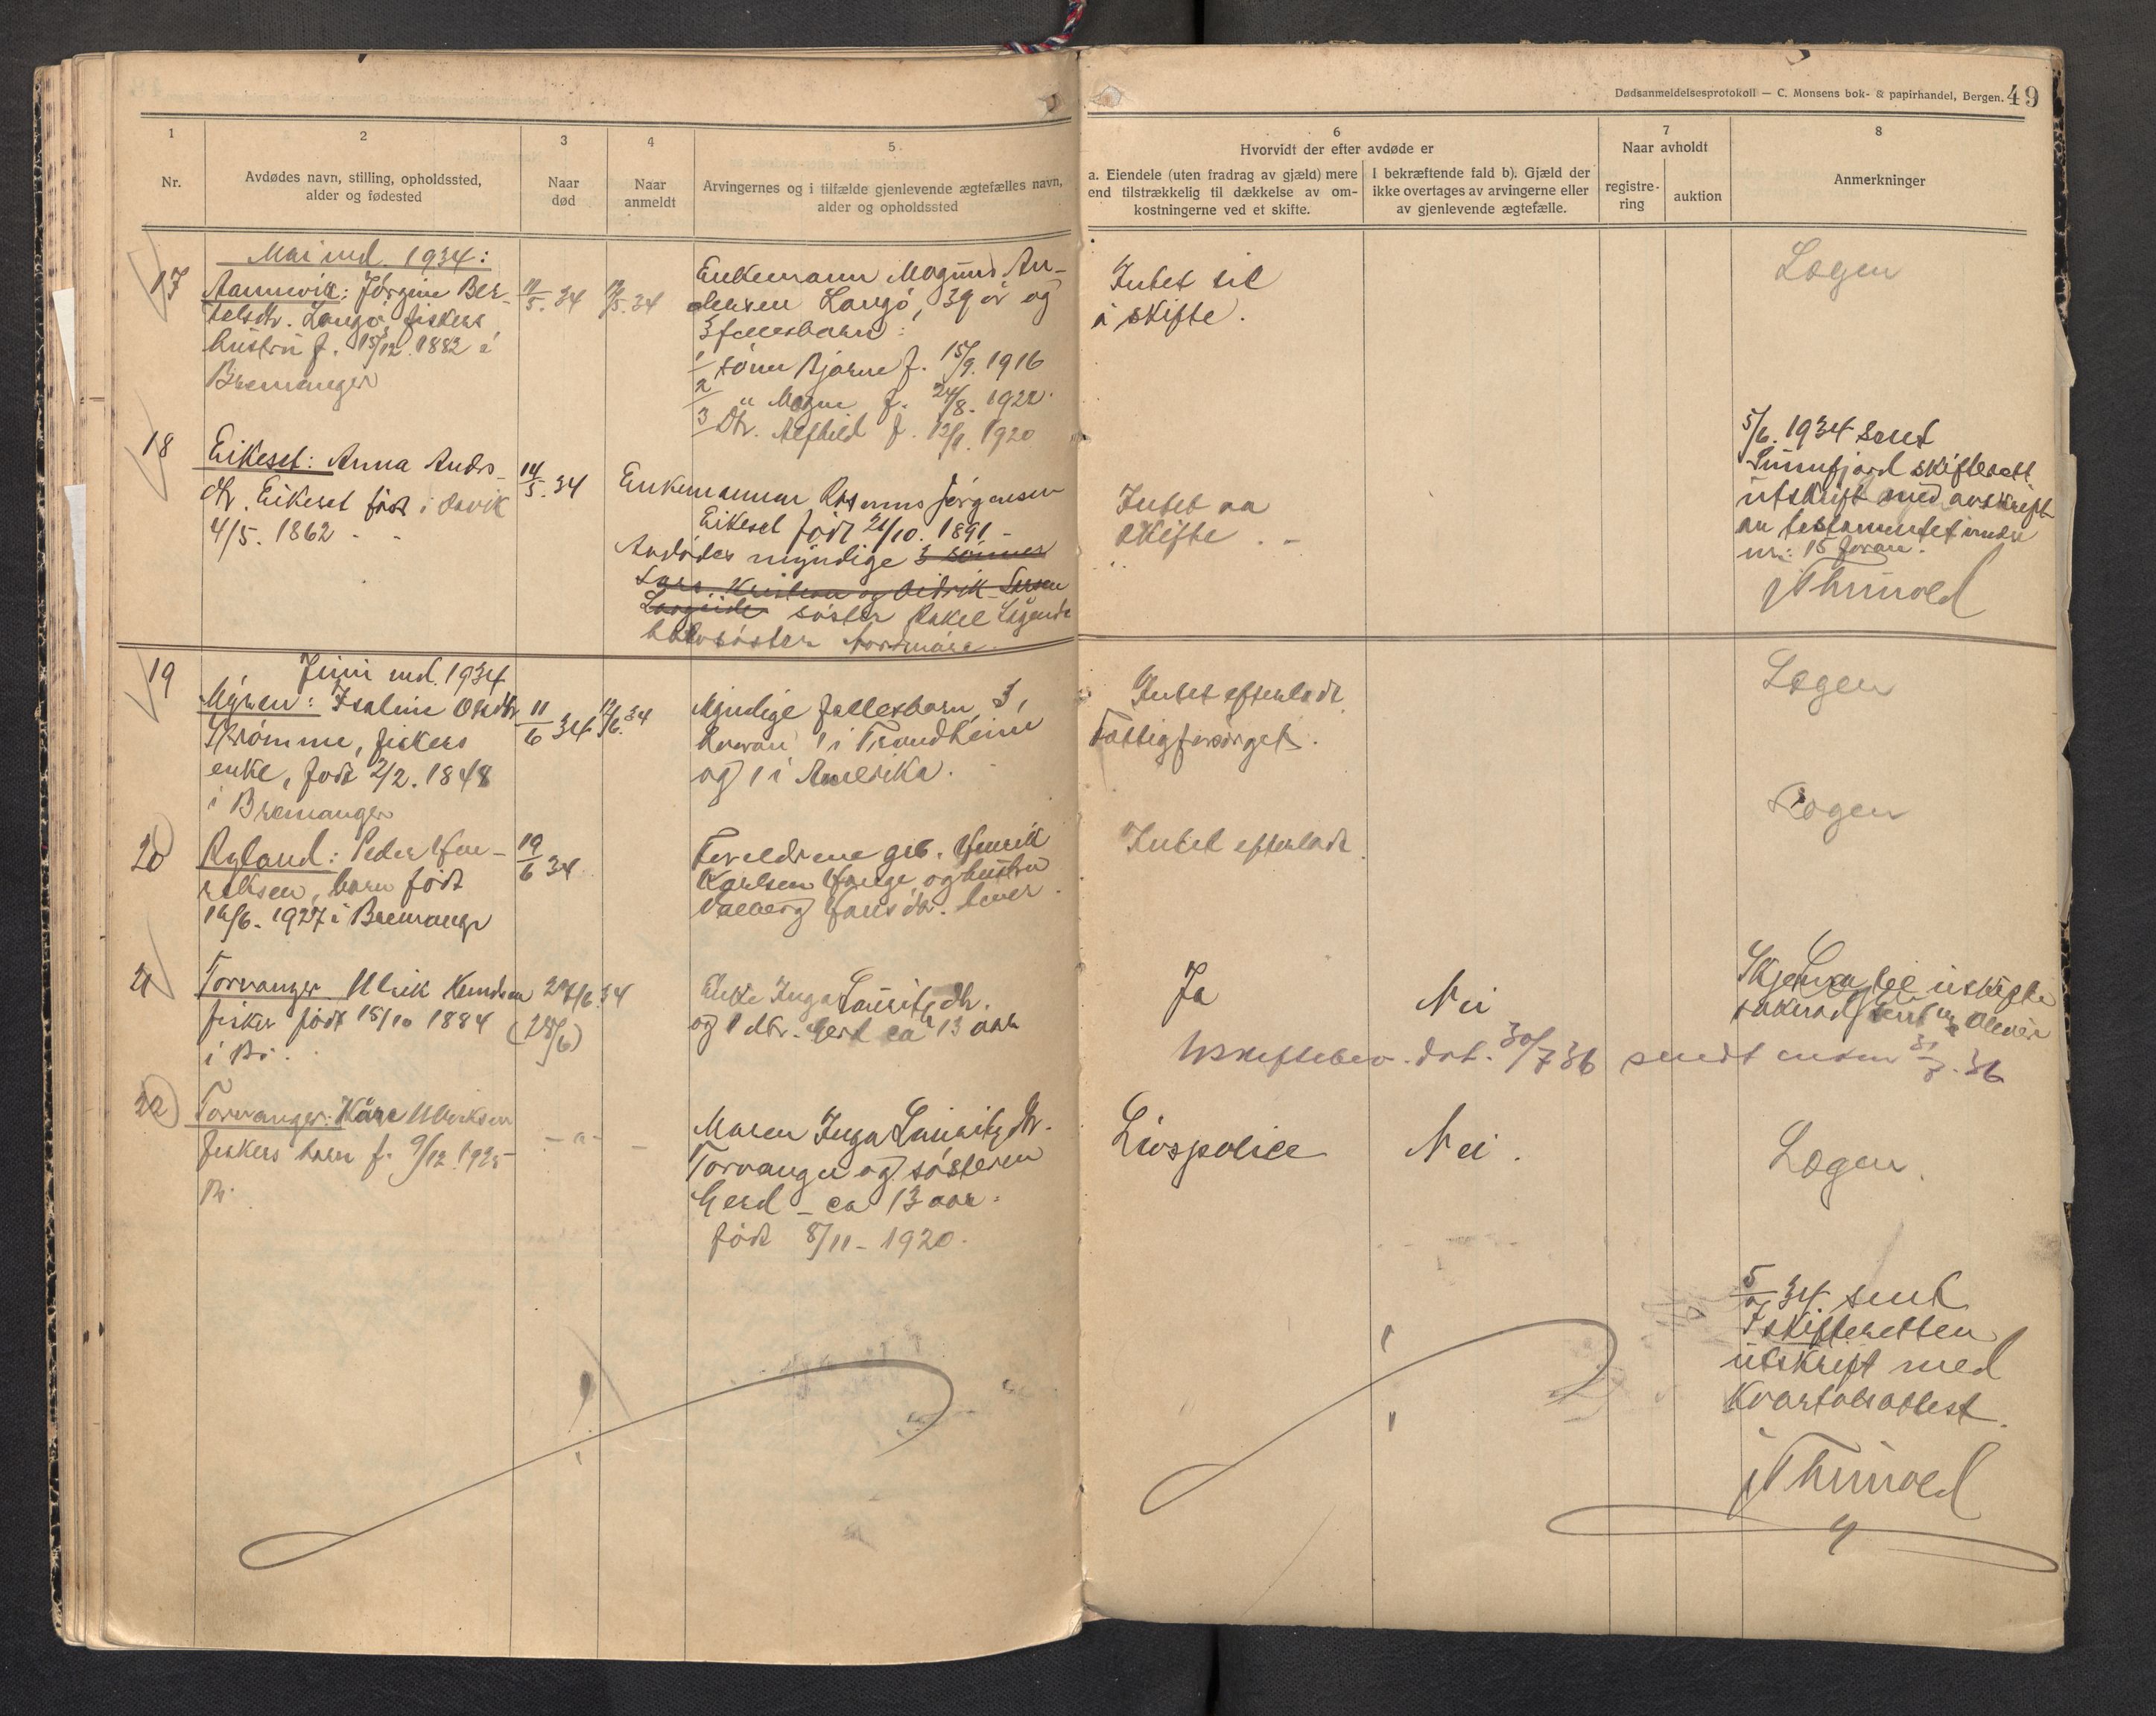 Dødsanmeldelsesprotokoll — C. Monsens bok- & papirhandel, Bergen. 49
1 2 3 4 5
Nr.
Avdødes navn, stilling, opholdssted,
alder og fødested
Naar
død
Naar
anmeldt
Arvingernes og i tilfælde gjenlevende ægtefælles navn,
alder og opholdssted
6
Hvorvidt der efter avdøde er
a. Eiendele (uten fradrag av gjæld) mere
end tilstrækkelig til dækkelse av om-
kostningerne ved et skifte.
I bekræftende fald b). Gjæld der
ikke overtages av arvingerne eller
av gjenlevende ægtefælle.
7
Naar avholdt
registre-
ring
auktion
8
Anmerkninger
Mai md. 1934:
17
Jørgine Ber-
telsdtr. Langø, fiskers
hustru f. 15/12. 1882 i
Bremanger
11/5. 34
/5. 34
Enkemann Magnus An-
densen Langø, 39 år og
3 fellesbarn:
1 sønn Bjarne f. 15/9. 1916
2 " Magne f. 24/8. 1922.
3 Dtr. Alfhild f. 1920
Intet til
å skifte.
Logen
18
Eikeset: Anna Andrs-
dtr. Eikeset født i Davik
4/5. 1862 - -
14/5. 34
Enkemannen Rasmus Jørgensen
Eikeset født 21/10. 1891 -
Avdødes myndige 3 sønner
Lars, Kristian og Didrik Larsen
søster Rakel
halvsøster
Intet aa
skifte. -
5/6. 1934 sent
Sunnfjord skifterett
utskrift med avskrift
av testamentet under
nr: 15 foran.
Juni md. 1934
19
Myren: Isaline Olsdtr
Strømme, fiskers
enke, født 2/2. 1848
i Bremanger
11/6 34
12/6. 34
Myndige fellesbarn 3,
hvorav 1 i Trondheim
og 1 i Amerika.
Intet efterladt.
Fattigforsørget.
Logen
20
Ryland: Peder Hen-
riksen, barn født
16/6. 1927 i Bremangr
19/6 34
Foreldrene grb. Henrik
Karlsen Hauge og hustru
Valborg Hansdtr. lever.
Intet efterladt.
Logen
21
Torvanger Ulrik Knudsen
fisker født 15/10 1884
i Br.
/6. 34
(28/6)
Enke Inga Lauritzdtr.
og 1 dtr. Gerd ca 13 aar
Ja
Nei
Uskiftebev. dat. 30/7 36 sendt enken 31/ . 36
22
Torvanger: Kåre Ulriksen
fiskers barn f. 9/12. 1925
Br.
- " -
-
Moren Inga Lauritzdtr.
Torvanger og søsteren
Gerd - ca 13 aar.
født 8/11 - 1920.
Livspolice
Nei.
Logen.
5/ 34 sent
skifteretten
utskrift med
Kvartalsattest.